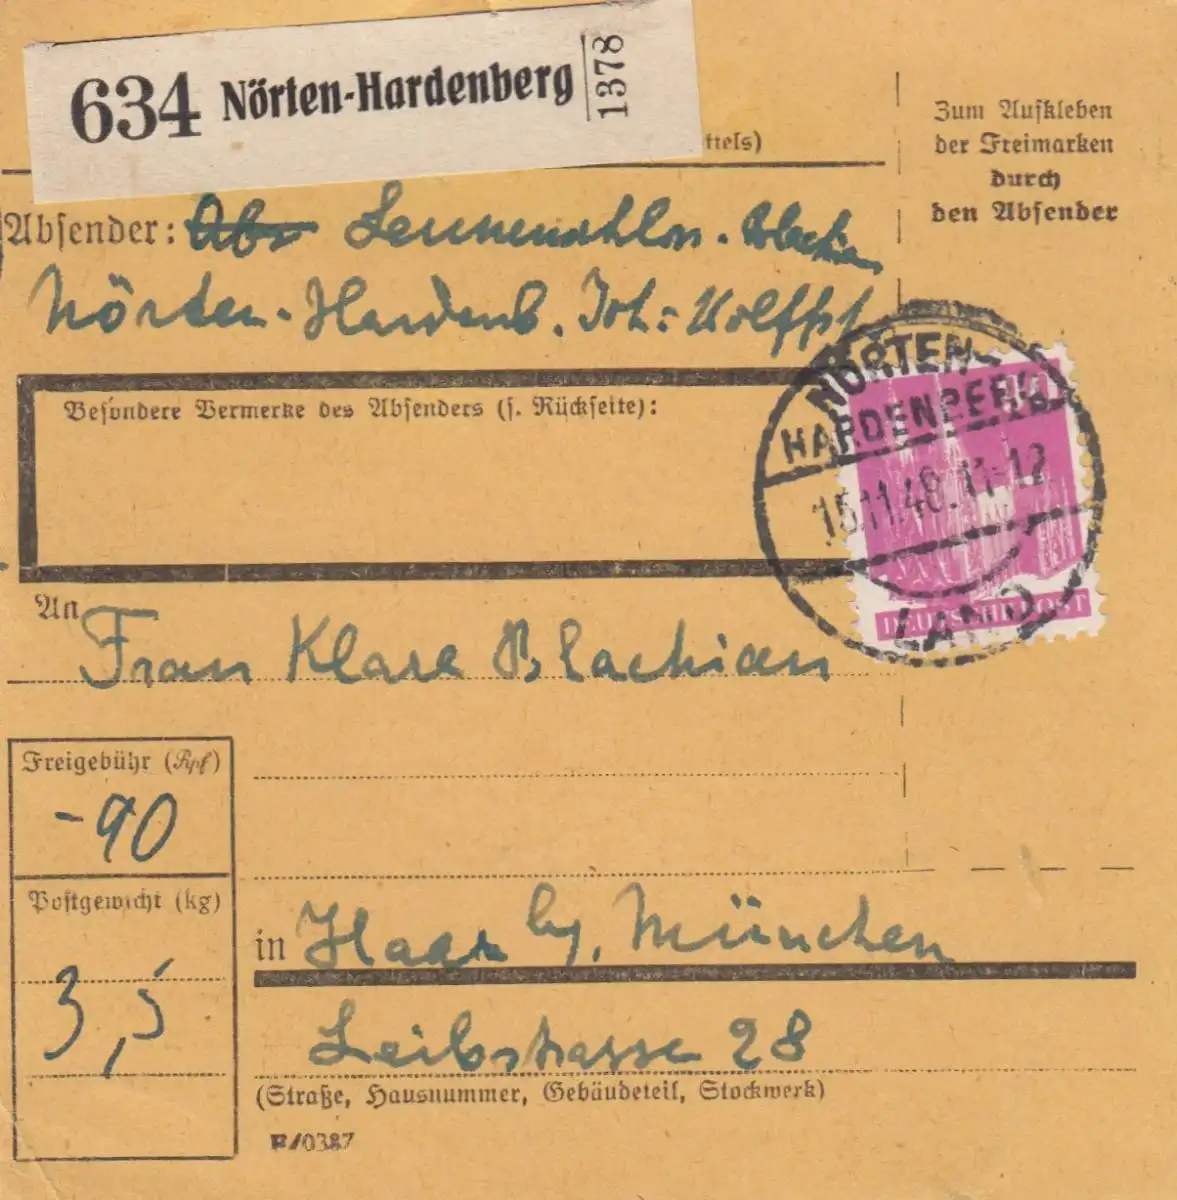 634 Nörten-Hardenberg 1378
ttels)
Zum Aufkleben
der Freimarken
durch
den Absender
Absender:
Nörten-Hardenb. Joh:
Besondere Vermerke des Absenders (s. Rückseite):
NÖRTEN-
HARDENBERG
15.11.48.11-12
LAND
DEUTSCHE POST
An
Frau Klara Blachian
Freigebühr (Rpf)
-90
Postgewicht (kg)
in Haar b/. München
3,5
Leibstrasse 28
(Straße, Hausnummer, Gebäudeteil, Stockwerk)
B/0387